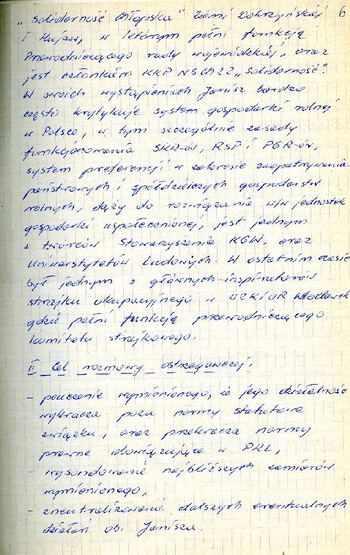 6
„Solidarność Chłopska" Ziemi Dobrzyńskiej
i Kujaw, w którym pełni funkcję
Przewodniczącego rady wojewódzkiej, oraz
jest członkiem KKP NSZZ „Solidarność".
W swoich wystąpieniach Janisz bardzo
często krytykuje system gospodarki rolnej
w Polsce, w tym szczególnie zasady
funkcjonowania SKR-ów, RSP i PGR-ów,
system preferencji w zakresie zaopatrywania
państwowych i spółdzielczych gospodarstw
rolnych, dąży do rozwiązania w/w jednostek
gospodarki uspołecznionej, jest jednym
z twórców Stowarzyszenia KGW, oraz
Uniwersytetów Ludowych. W ostatnim czasie
był jednym z głównych inspiratorów
strajku okupacyjnego w WZKiOR Włocławek
gdzie pełni funkcję przewodniczącego
komitetu strajkowego.
II Cel rozmowy ostrzegawczej.
- pouczenie wymienionego, że jego działalność
wykracza poza normy statutowe
związku, oraz przekracza normy
prawne obowiązujące w PRL,
- wysondowanie najbliższych zamiarów
wymienionego,
- zneutralizowanie dalszych ewentualnych
działań ob. Janisza.